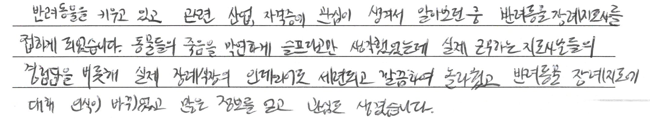 반려동물을 키우고 있고 관련 산업, 자격증에 관심이 생겨서 알아보던 중 반려동물 장례지도사를
접하게 되었습니다. 동물들의 죽음을 막연하게 슬프다고만 생각했었는데 실제 근무하는 지도사분들의
경험담을 비롯해 실제 장례식장의 인테리어도 세련되고 깔끔하여 놀라웠고 반려동물 장례지도사에
대해 인식이 바뀌었고 많은 정보를 얻고 관심도 생겼습니다.